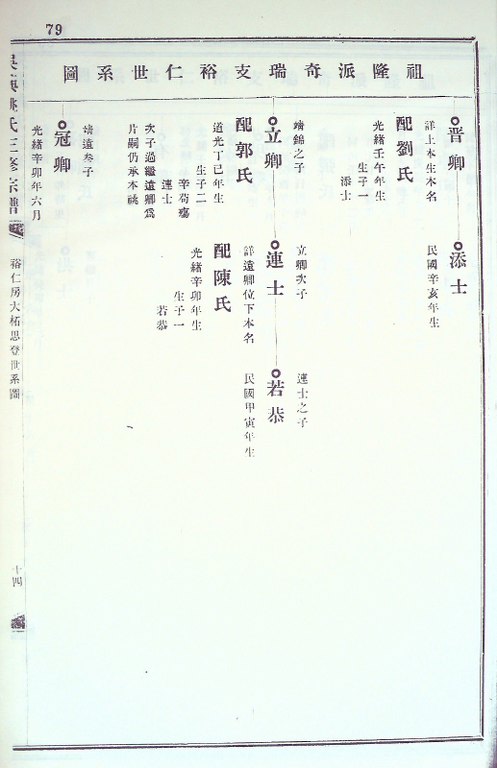 79
祖隆派奇瑞支裕仁世系圖
晋卿
詳上本生本名
配劉氏
光緒壬午年生
生子一
添士
添士
民國辛亥年生
立卿
靖錦之子
配郭氏
道光丁巳年生
生子二
辛苟殤
連士
次子過繼遠卿爲
片嗣仍承本祧
連士
立卿次子
詳遠卿位下本名
配陳氏
光緒辛卯年生
生子一
若恭
若恭
連士之子
民國甲寅年生
冠卿
靖遠叁子
光緒辛卯年六月
氏三修宗譜
裕仁房大柘思登世系圖
十四